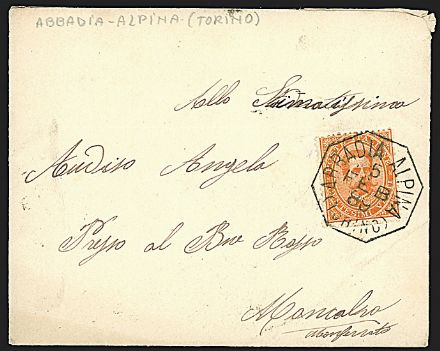 ABBADIA-ALPINA (TORINO)
Allo Stimatissimo
Audiso Angela
Presso al Bue Rosso
Moncalvo
Monferrato
ABBADIA ALPINA